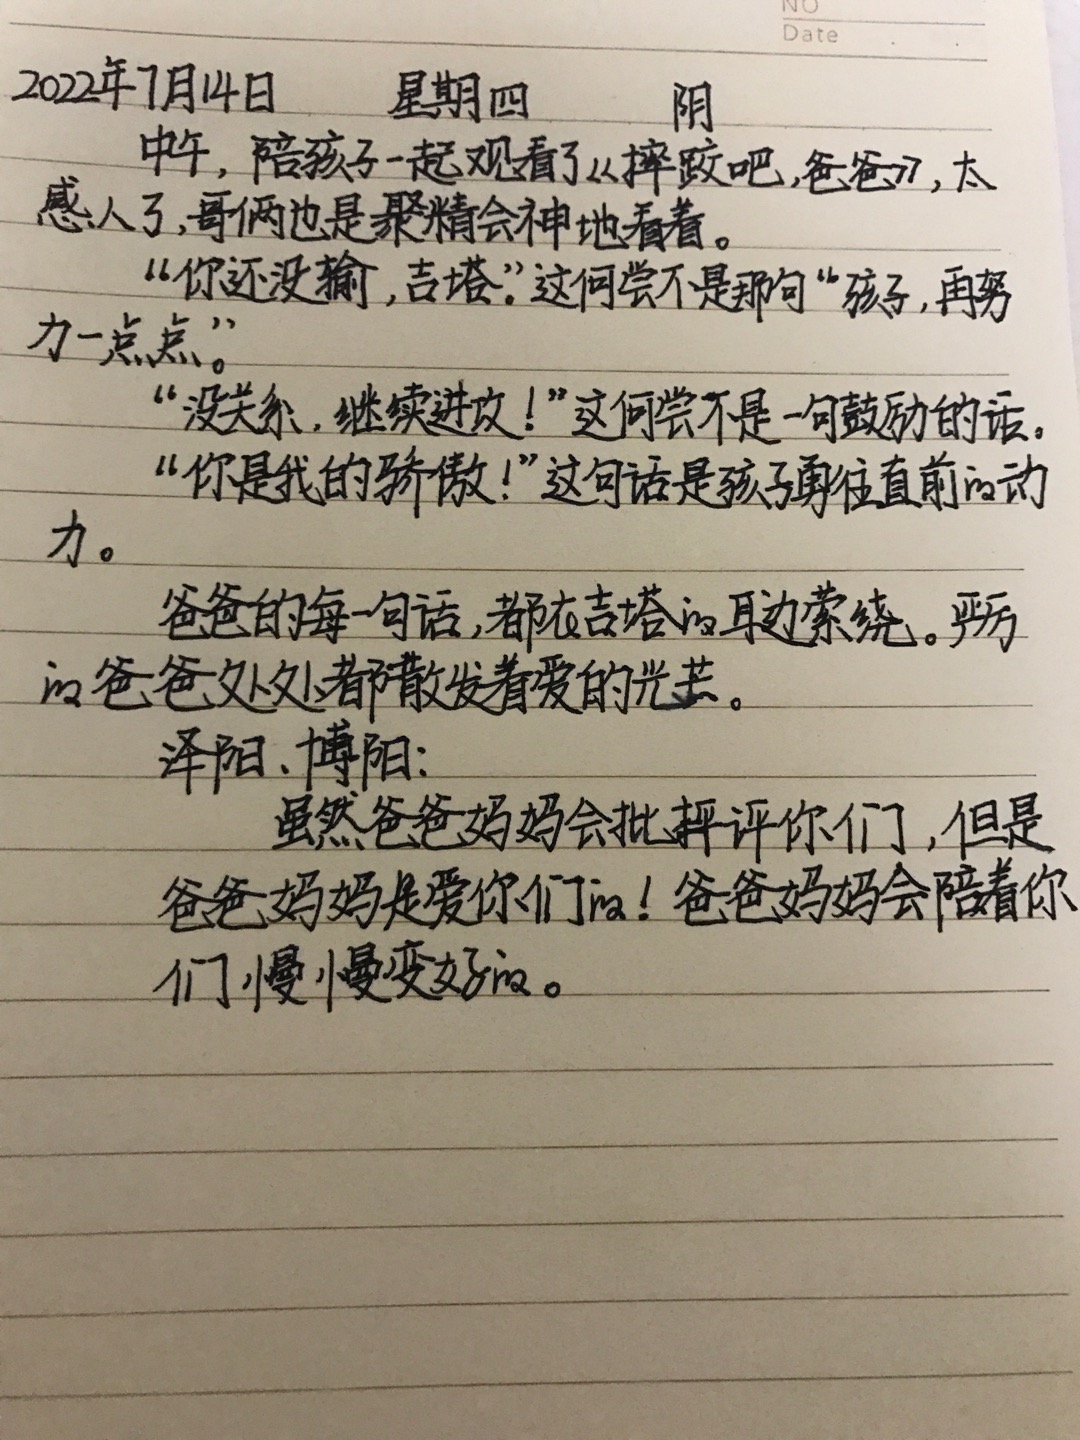 NO
Date
2022年7月14日 星期四 阴
中午，陪孩子一起观看了《摔跤吧，爸爸》，太
感人了，哥俩也是聚精会神地看着。
“你还没输，吉塔。”这何尝不是那句“孩子，再努
力一点点”。
“没关系，继续进攻！”这何尝不是一句鼓励的话。
“你是我的骄傲！”这句话是孩子勇往直前的动
力。
爸爸的每一句话，都在吉塔的耳边萦绕。严厉
的爸爸处处都散发着爱的光芒。
泽阳、博阳：
虽然爸爸妈妈会批评你们，但是
爸爸妈妈是爱你们的！爸爸妈妈会陪着你
们慢慢变好的。